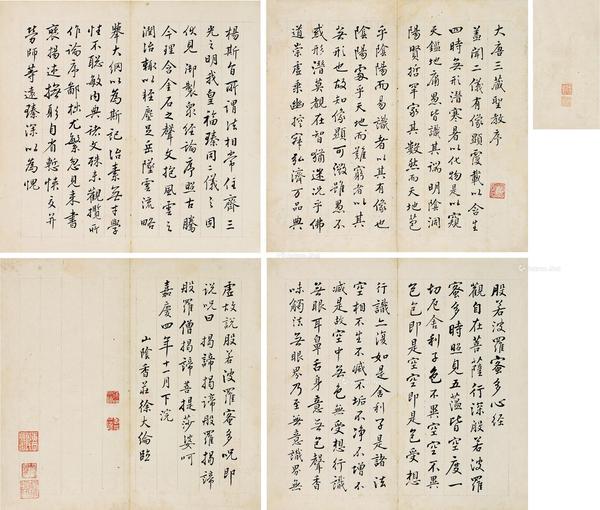 大唐三藏聖教序
蓋聞二儀有像顯覆載以含生
四時無形潛寒暑以化物是以窺
天鑑地庸愚皆識其端明陰洞
陽賢哲罕窮其數然而天地苞
乎陰陽而易識者以其有像也
陰陽處乎天地而難窮者以其
無形也故知像顯可徵雖愚不
惑形潛莫覩在智猶迷況乎佛
道崇虛乘幽控寂弘濟萬品典
揚斯旨所謂法相常住齊三
光之明我皇福臻同二儀之固
伏見御製衆經論序照古騰
今理含金石之聲文抱風雲之
潤治輒以輕塵足岳墜露流略
舉大綱以為斯記治素無才學
性不聰敏內典諸文殊未觀攬所
作論序鄙拙尤繁忽見来書
褒揚述撫躬自省慙悚交并
勞師等遠臻深以為愧
般若波羅蜜多心経
觀自在菩薩行深般若波羅
蜜多時照見五蘊皆空度一
切厄舍利子色不異空空不異
色色即是空空即是色受想
行識亦復如是舍利子是諸法
空相不生不滅不垢不淨不增不
減是故空中無色無受想行識
無眼耳鼻舌身意無色聲香
味觸法無眼界乃至無意識界無
虛故說般若波羅蜜多呪即
說呪曰 揭諦揭諦般羅揭諦
般羅僧揭諦菩提莎婆呵
嘉慶四年十月下浣
山陰香莊徐大倫臨